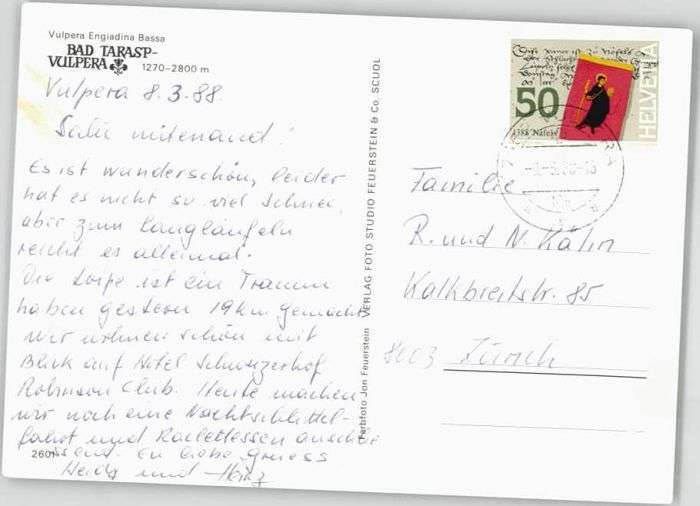 Vulpera Engiadina Bassa
BAD TARASP-
VULPERA
1270-2800 m
Vulpera 8.3.88.
Salü mitenand!
Es ist wunderschön, leider
hat es nicht so viel Schnee,
aber zum Langläufeln
reicht es allemal.
Die Loipe ist ein Traum
haben gestern 19 km gemacht
wir wohnen schön mit
Blick auf Hotel Schweizerhof
Robinson Club. Heute machen
wir noch eine Nachtschlittel-
fahrt und Raclettessen anschlie
ssend. En liebe Gruess
Heidy und Heinz
2601
Farbfoto Jon Feuerstein VERLAG FOTO STUDIO FEUERSTEIN & Co. SCUOL
50
1388 Näfels
HELVETIA
Familie
R. und N. Kälin
Kalkbreitestr. 85
8003 Zürich